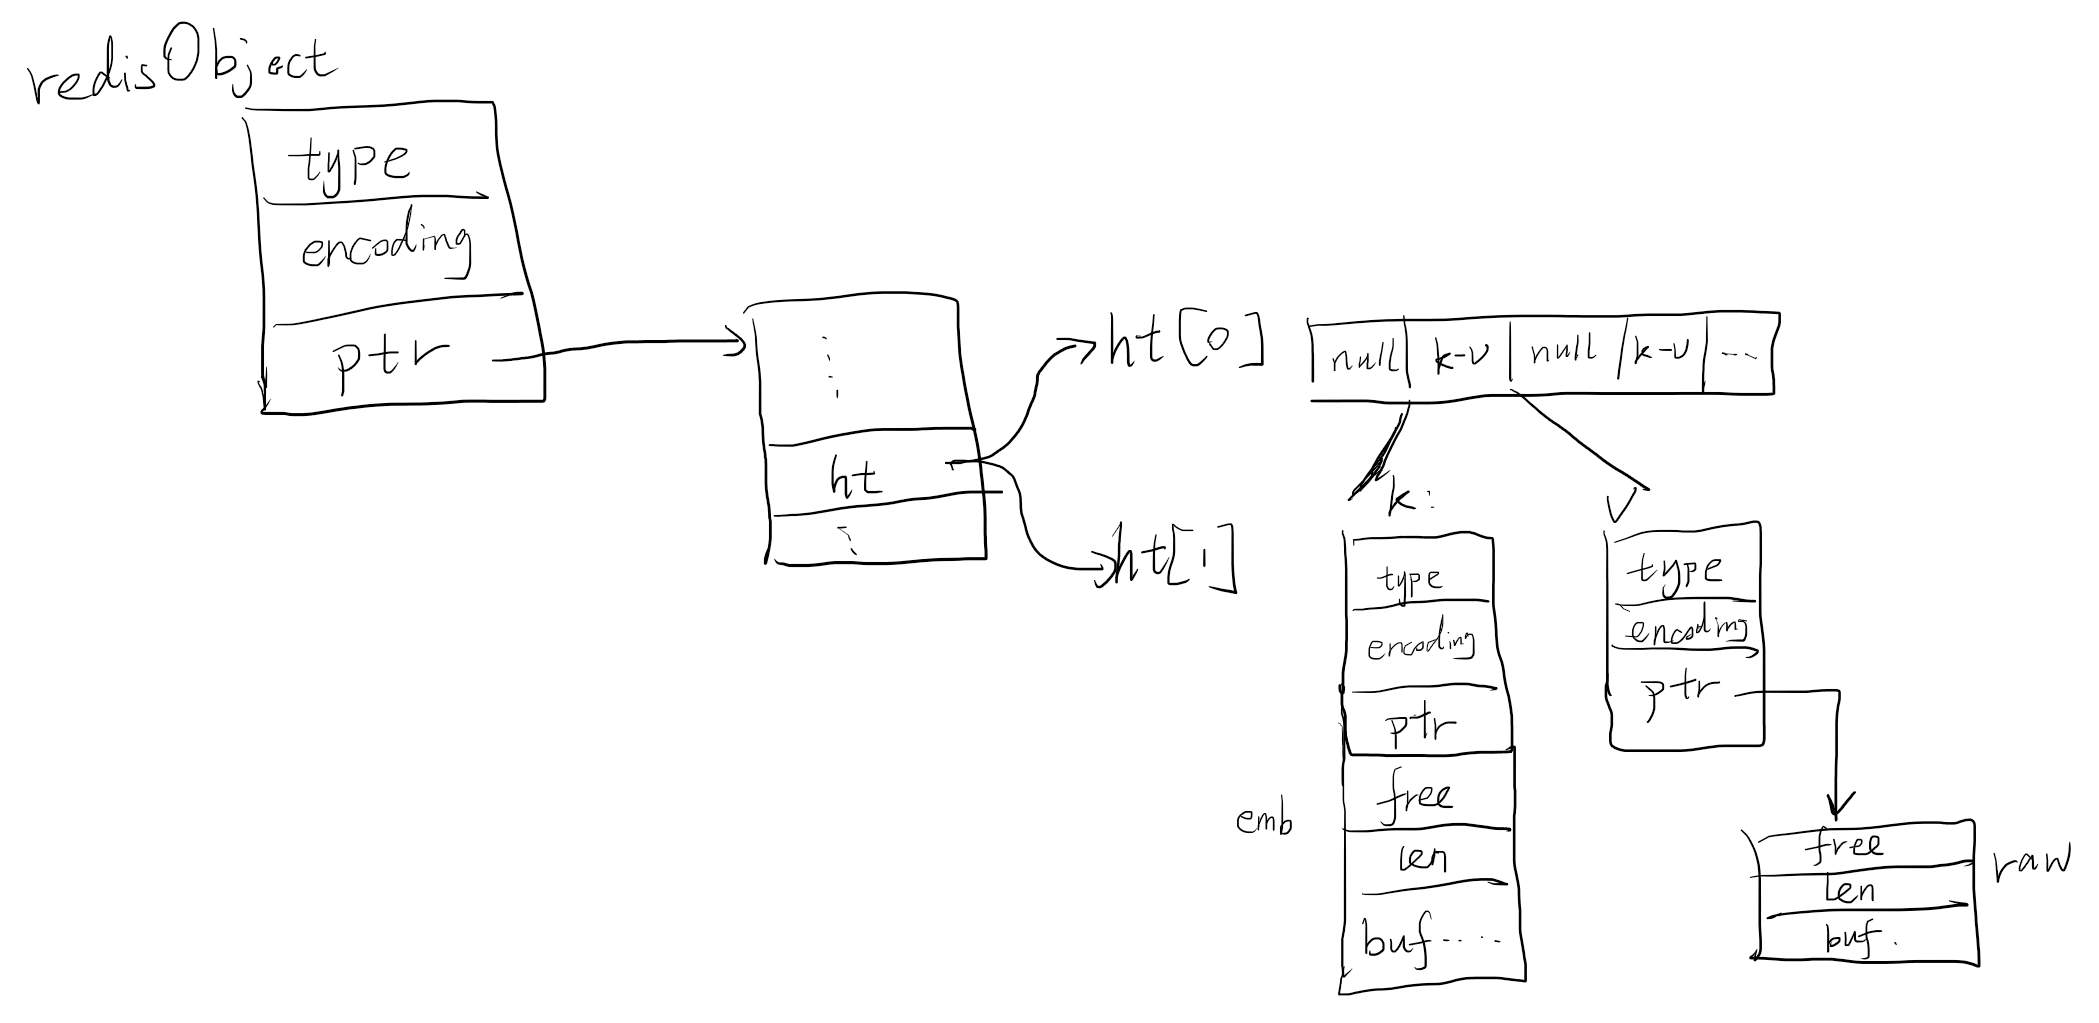 redisObject
type
encoding
ptr
ht
ht[0]
ht[1]
null k-v null k-v ...
k:
type
encoding
ptr
free
len
buf.....
emb
v
type
encoding
ptr
free
len
buf.
raw